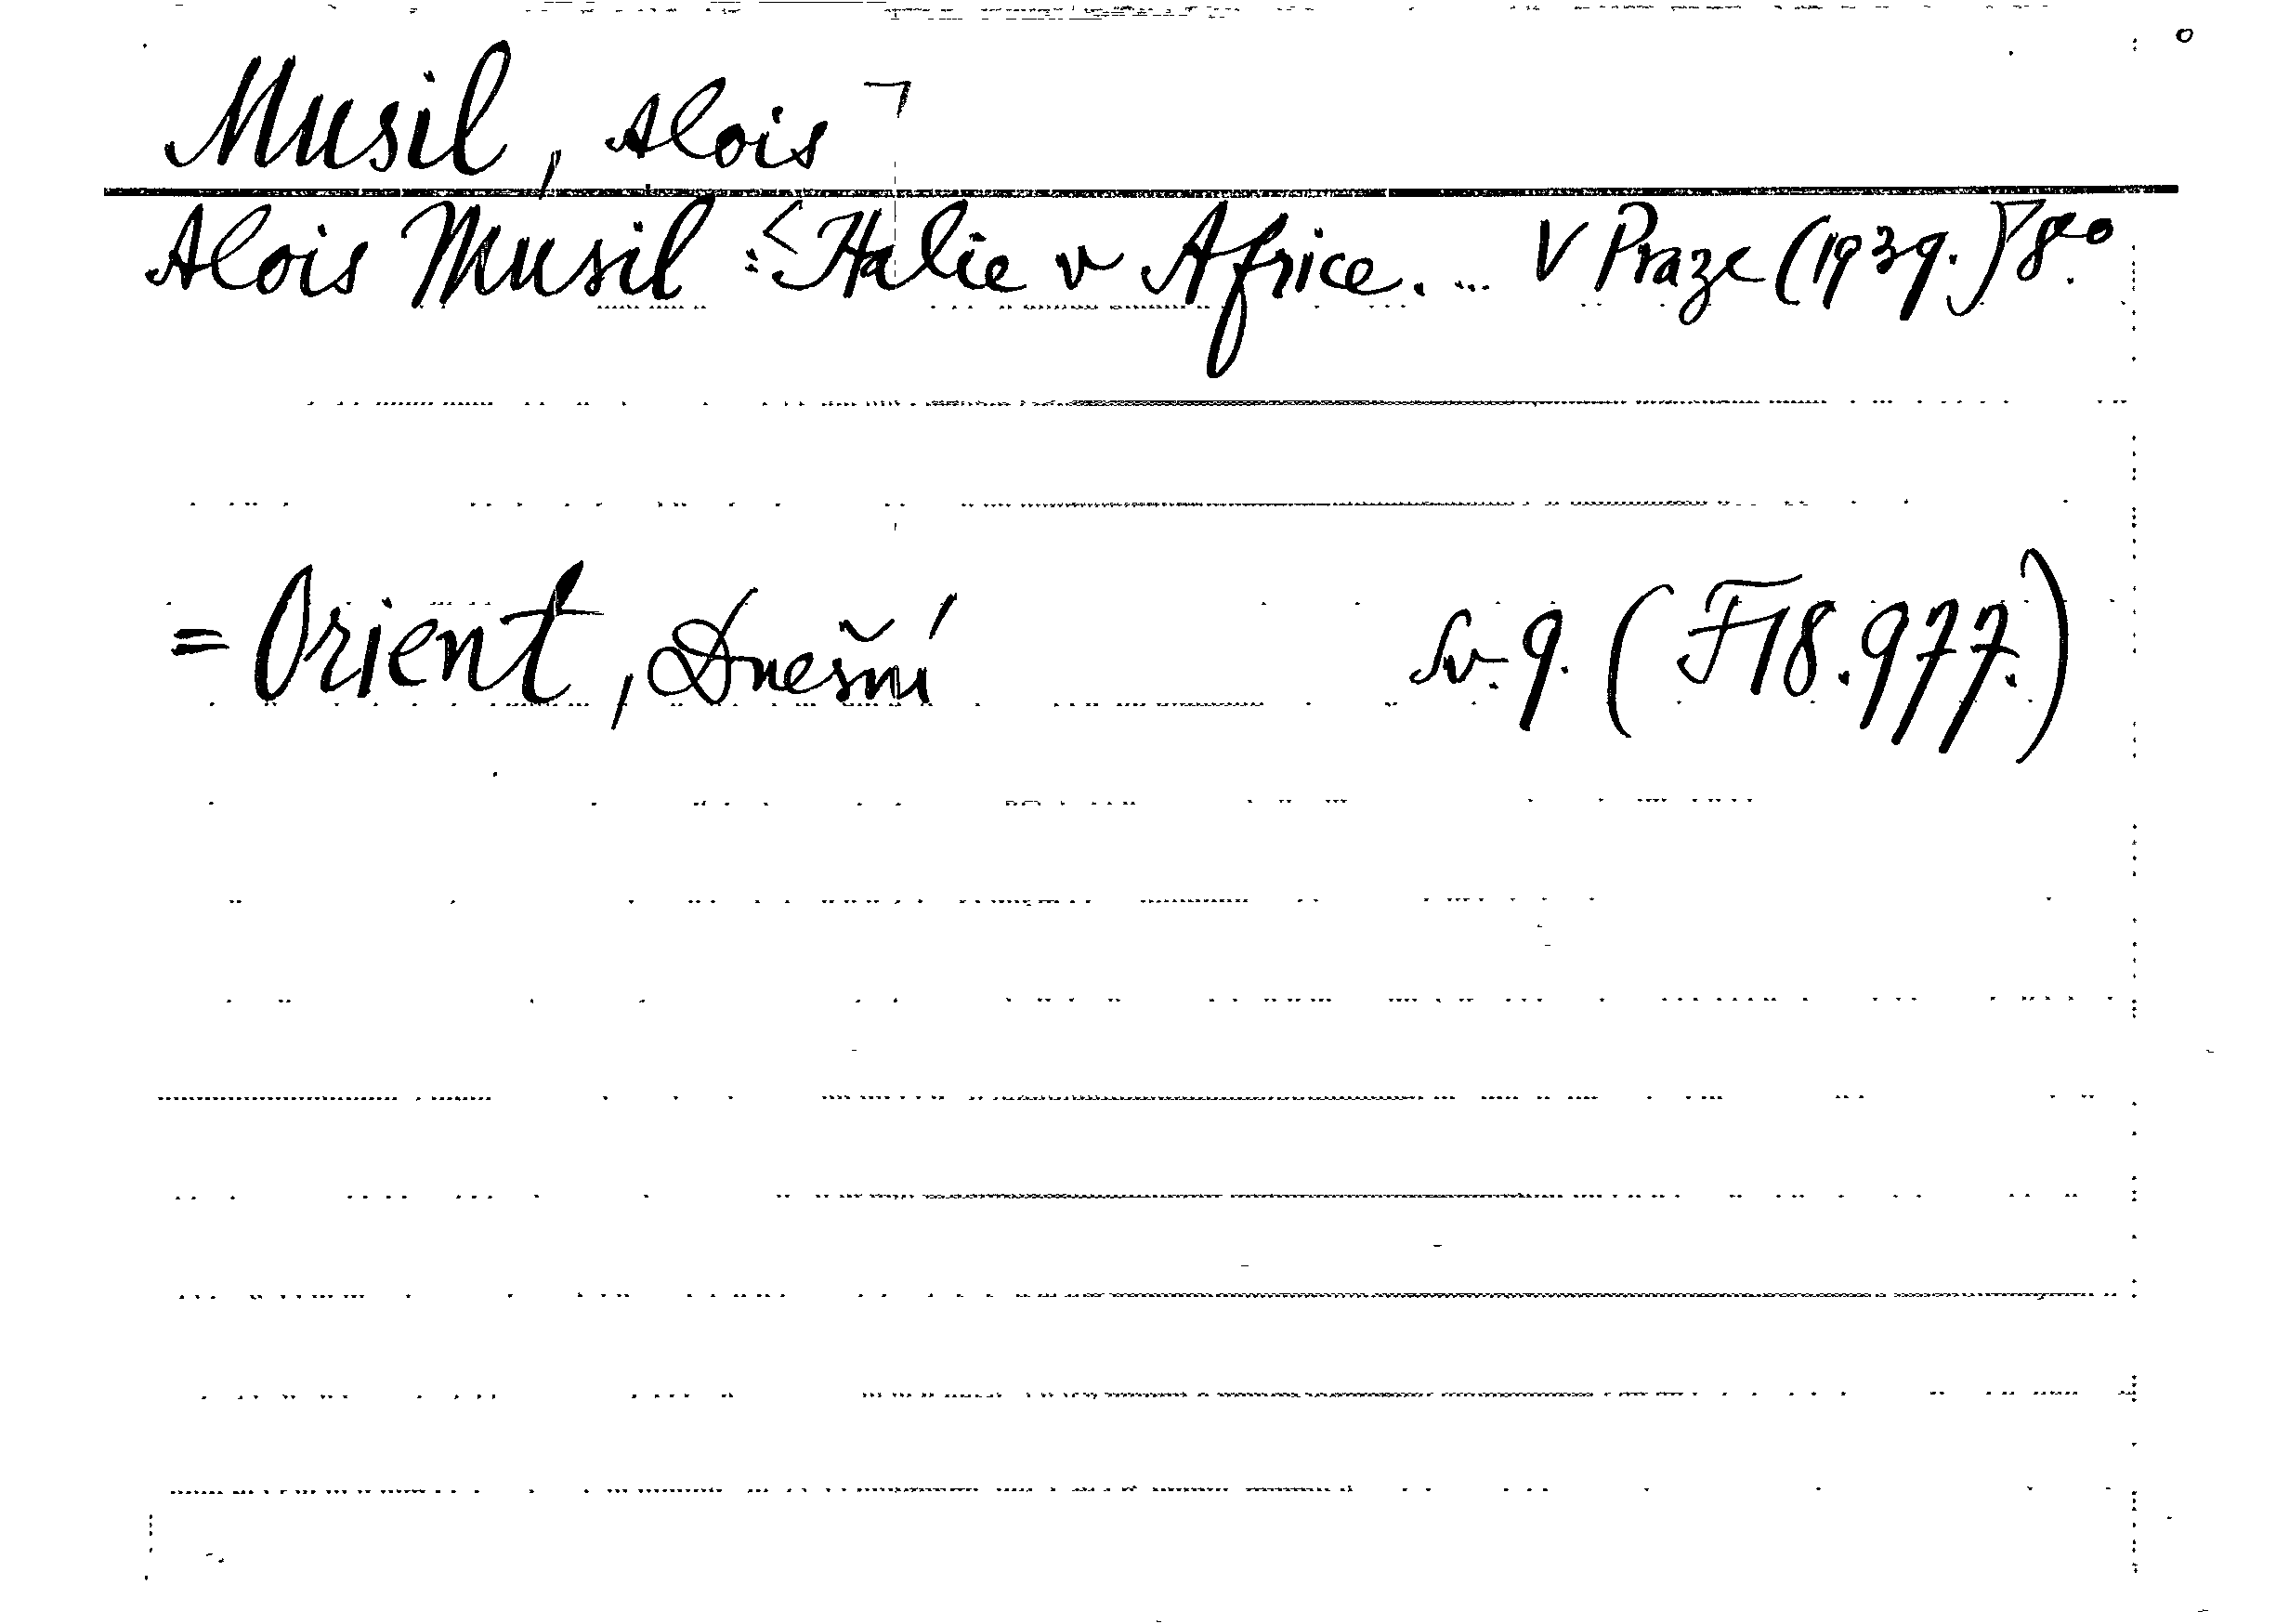 Musil, Alois ¬
Alois Musil : <Italie v Africe. ... V Praze (1939.) 8.°
= Orient, Dnešní Sv. 9. (F 18.977.)